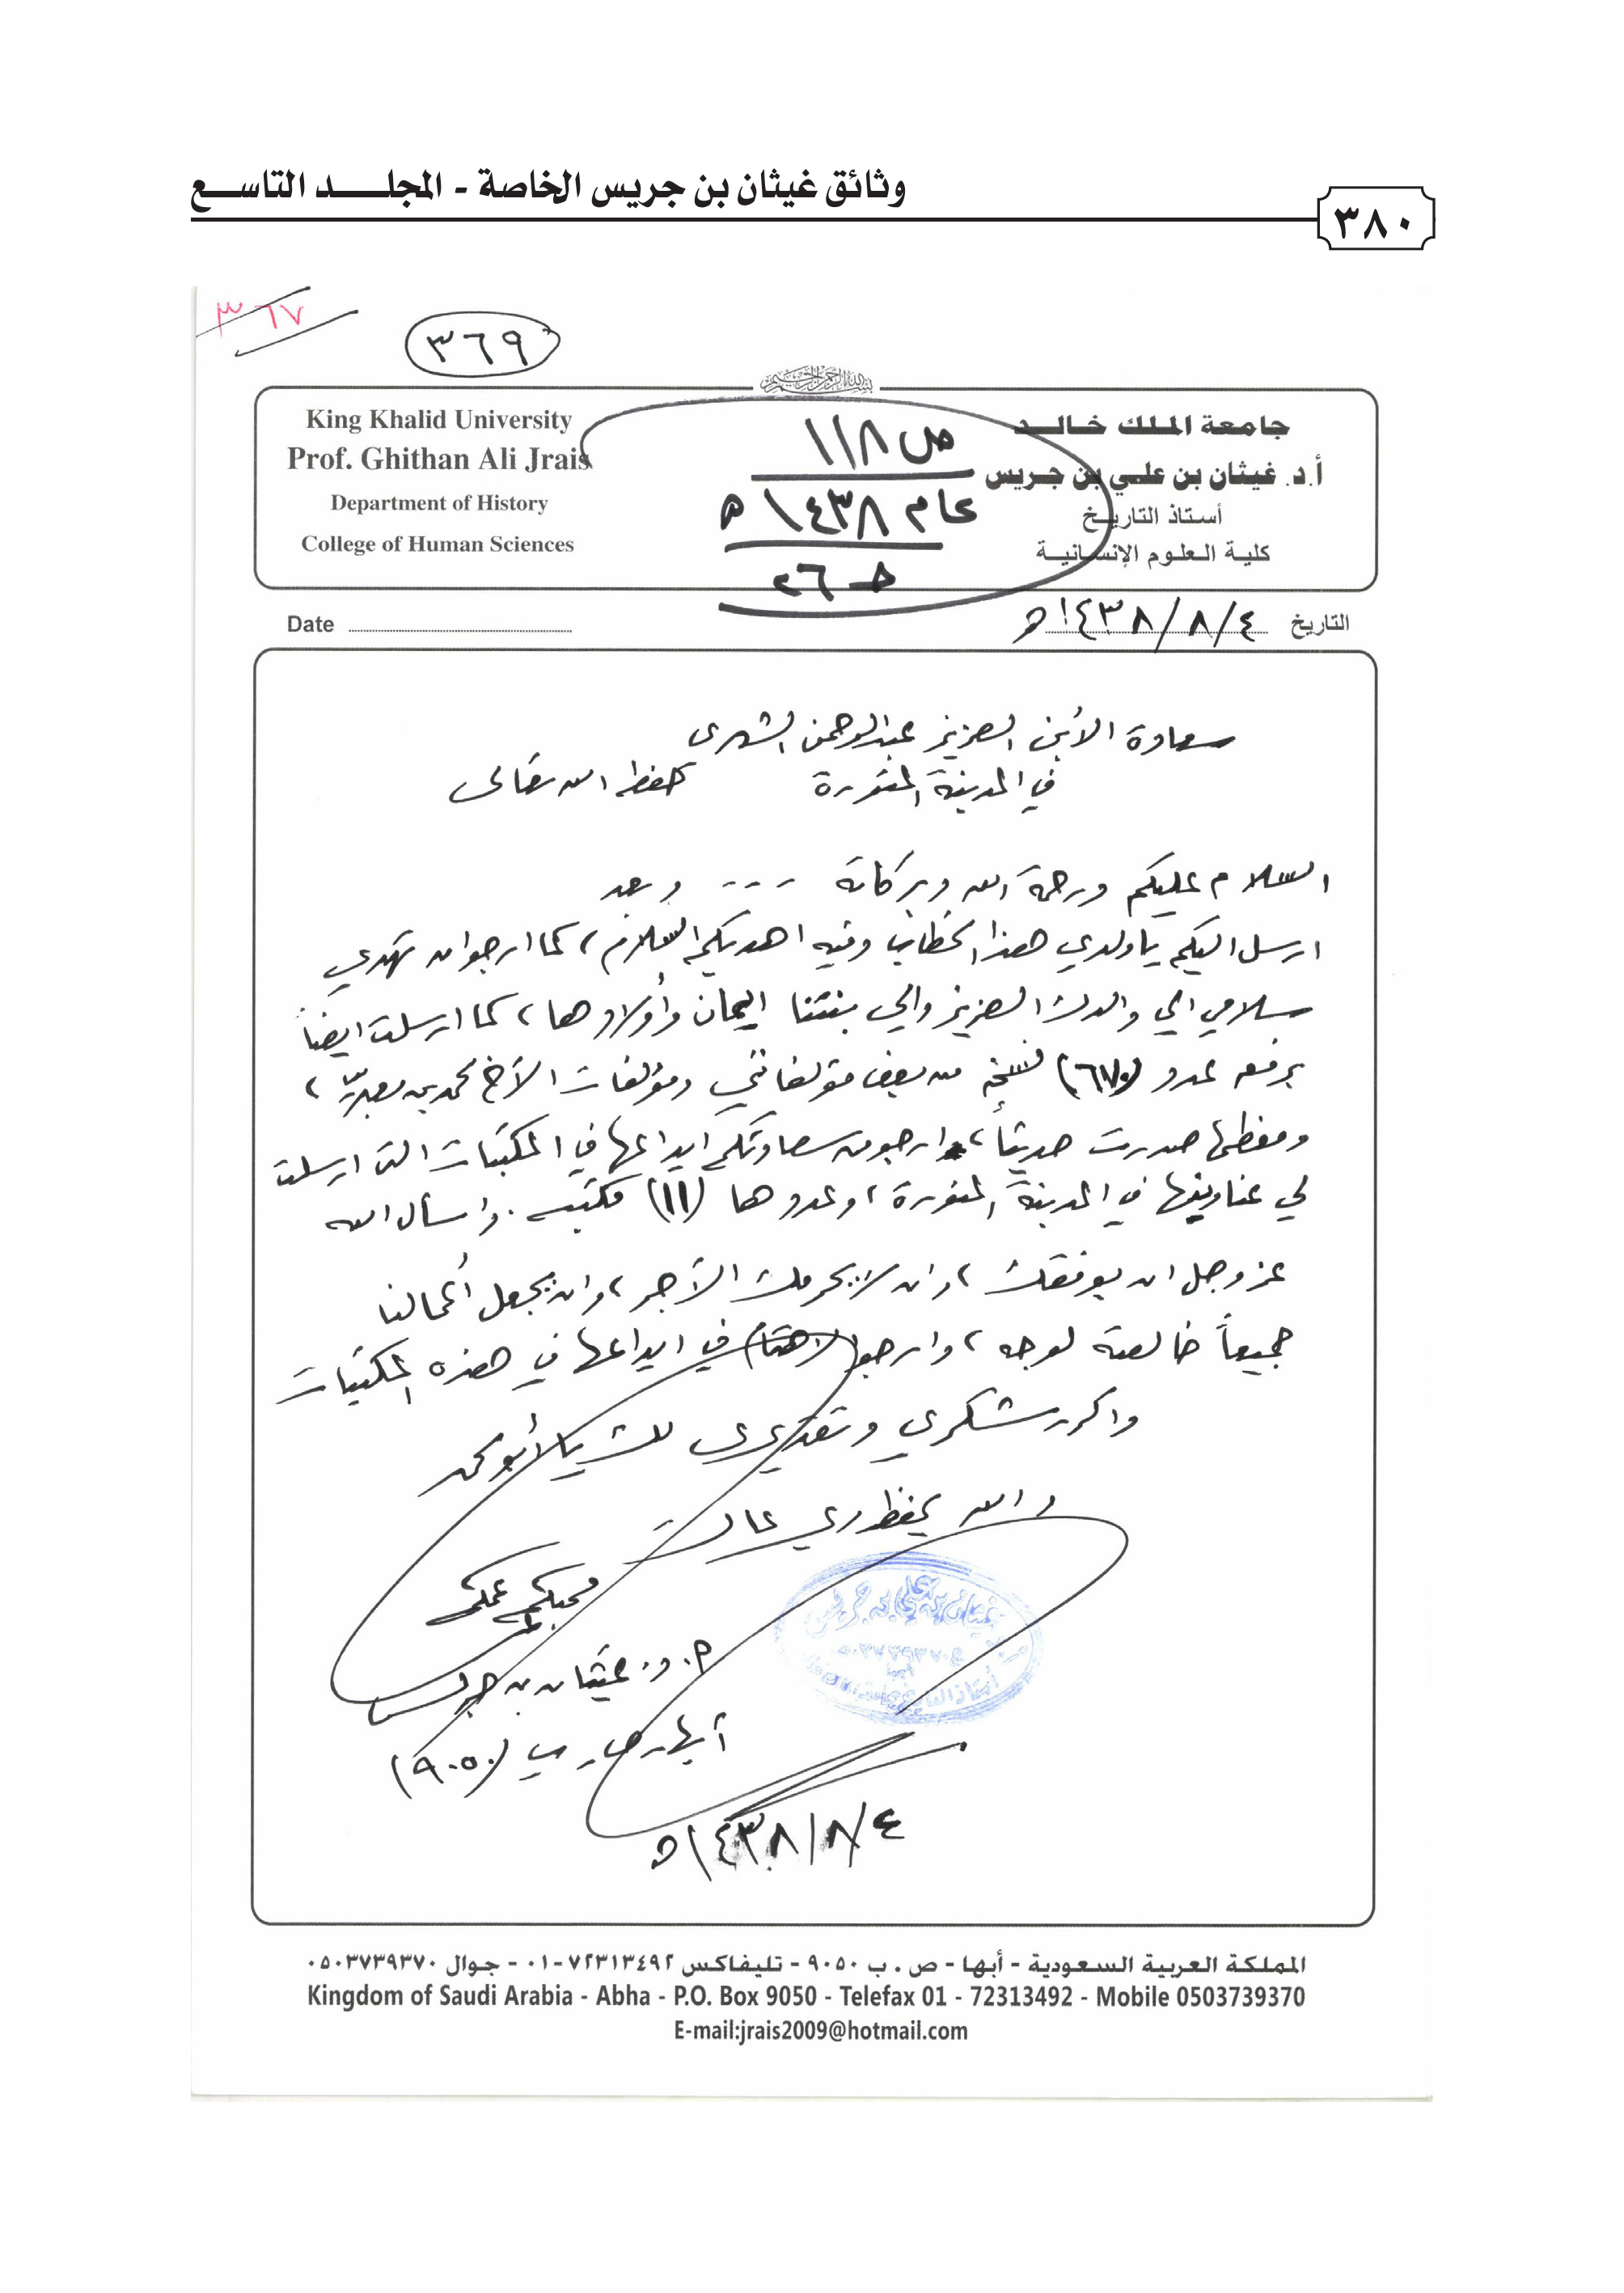 وثائق غيثان بن جريس الخاصة - المجلد التاسع
٣٨٠
٣٦٧
٣٦٩
بسم الله الرحمن الرحيم
King Khalid University
Prof. Ghithan Ali Jrais
Department of History
College of Human Sciences
جامعة الملك خالد
أ.د. غيثان بن علي بن جريس
أستاذ التاريخ
كلية العلوم الإنسانية
ص ١١٨
عام ١٤٣٨ هـ
حـ ٢٦
Date
التاريخ ٤/٨/١٤٣٨هـ
سعادة الأبن العزيز عبدالرحمن الشهري
في المدينة المنورة حفظه الله تعالى
السلام عليكم ورحمة الله وبركاته --- وبعد
ارسل اليكم ياولدي هذا الخطاب وفيه اهديكم السلام، كما ارجوا ان تهدي
سلامي الي والدك العزيز والى بنتنا ايمان وأولادها، كما ارسلت ايضاً
برفقه عدد نسخة من بعض مؤلفاتي ومؤلفات الأخ محمد بن معبر،
ومعظمها صدرت حديثاً، وارجو من سعادتكم ايداعها في المكتبات التي ارسلت
لي عناوينها في المدينة المنورة، وعددها (١١) مكتبه. واسأل الله
عز وجل ان يوفقك، وان لا يحرمك الأجر، وان يجعل أعمالنا
جميعاً خالصة لوجه، وارجوا في ايداعها في هذه المكتبات
واكرر شكري وتقديري لك يا أبو محمد
والله يحفظ ويرعاك
محبكم عمكم
أ. د. غيثان بن جريس
أبها - ص. ب (٩٠٥٠)
٤/٨/١٤٣٨هـ
غيثان بن علي بن جريس
أبها
المملكة العربية السعودية - أبها - ص . ب ٩٠٥٠ - تليفاكس ٧٢٣١٣٤٩٢-٠١ - جوال ٠٥٠٣٧٣٩٣٧٠
Kingdom of Saudi Arabia - Abha - P.O. Box 9050 - Telefax 01 - 72313492 - Mobile 0503739370
E-mail:jrais2009@hotmail.com